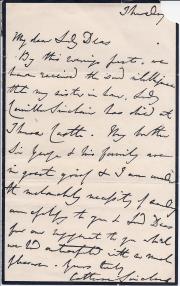 Thursday
My dear Lady Deas
By this evening's post, we
have received the sad intelligence
that my sister in law, Lady
Camilla Sinclair has died at
Thurso Castle. My brother
Sir George & his family are
in great grief & I am under
the melancholy necessity of sending
an apology to you & Lord Deas
for our engagement to you which
we had with so much
pleasure. Yours truly
Catherine Sinclair